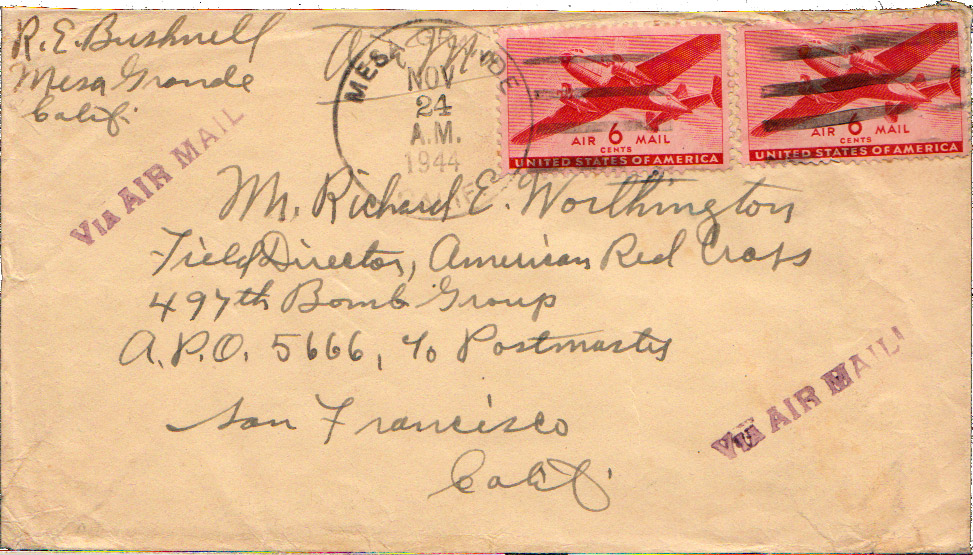 R. E. Bushnell
Mesa Grande
Calif.
Air Mail
MESA GRANDE
NOV
24
A.M.
1944
CALIF.
AIR 6 MAIL
CENTS
UNITED STATES OF AMERICA
AIR 6 MAIL
CENTS
UNITED STATES OF AMERICA
VIA AIR MAIL
Mr. Richard E. Worthington
Field Director, American Red Cross
497th Bomb Group
A.P.O. 5666, c/o Postmaster
San Francisco
Calif.
VIA AIR MAIL